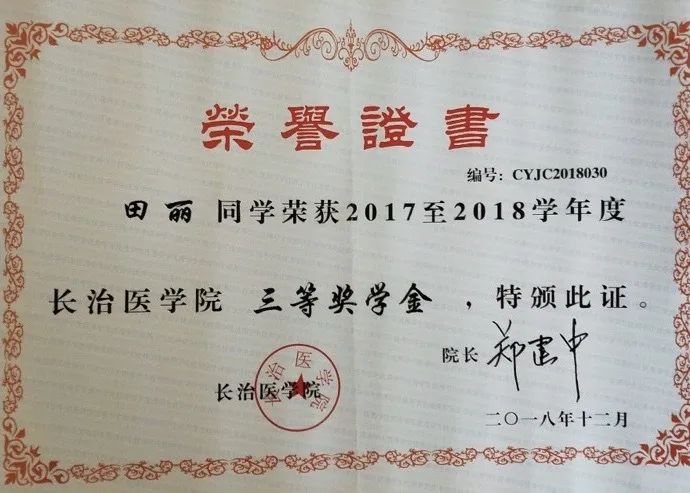 榮譽證書
编号：CYJC2018030
田丽 同学荣获2017至2018学年度
长治医学院 三等奖学金 ，特颁此证。
院长 郑建中
长治医学院
长治医学院
二〇一八年十二月